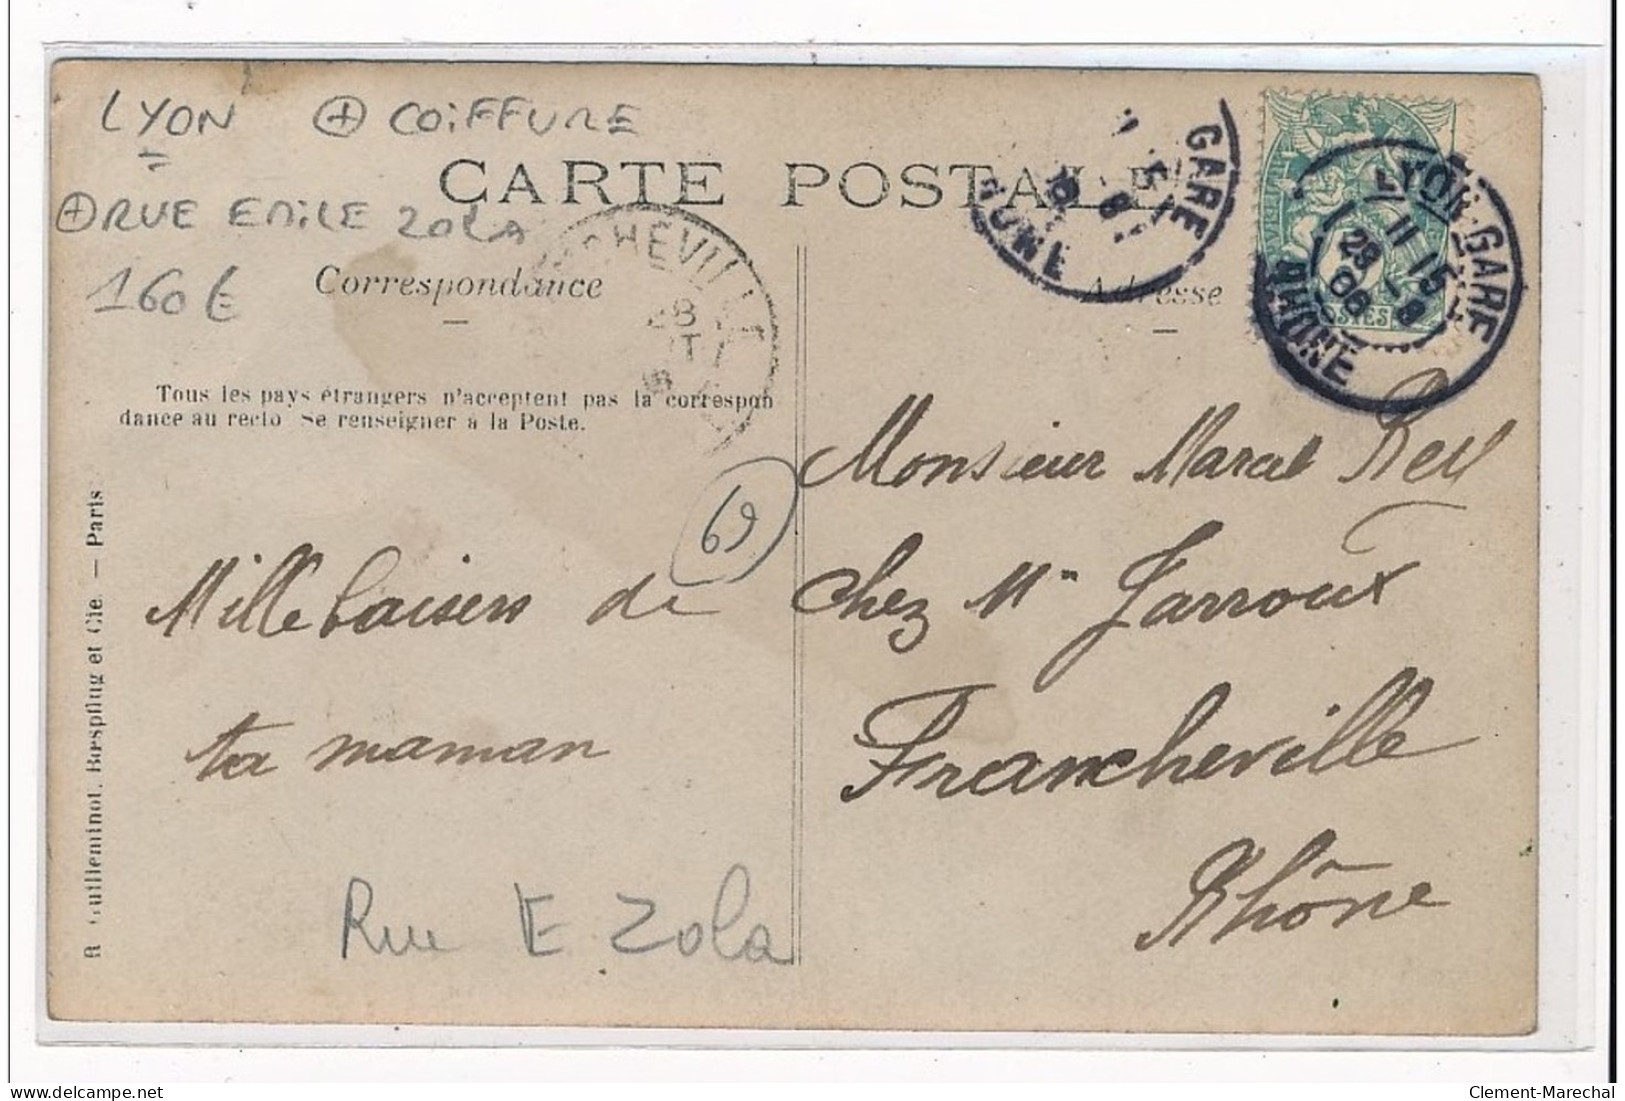 LYON + COIFFURE
CARTE POSTALE
+ RUE EMILE ZOLA
160€
Correspondance
Adresse
Tous les pays étrangers n'acceptent pas la correspon
dance au recto Se renseigner à la Poste.
FRANCHEVILLE
GARE
RHONE
LYON-GARE
11 15
29 - 8
06
RHONE
POSTES
Monsieur Marcel Rey
69
Mille baisers de
chez Mr Jarroux
ta maman
Francheville
Rhône
Rue E Zola
R. Guilleminot, Bœspflug et Cie. — Paris
Clement-Marechal
delcampe.net